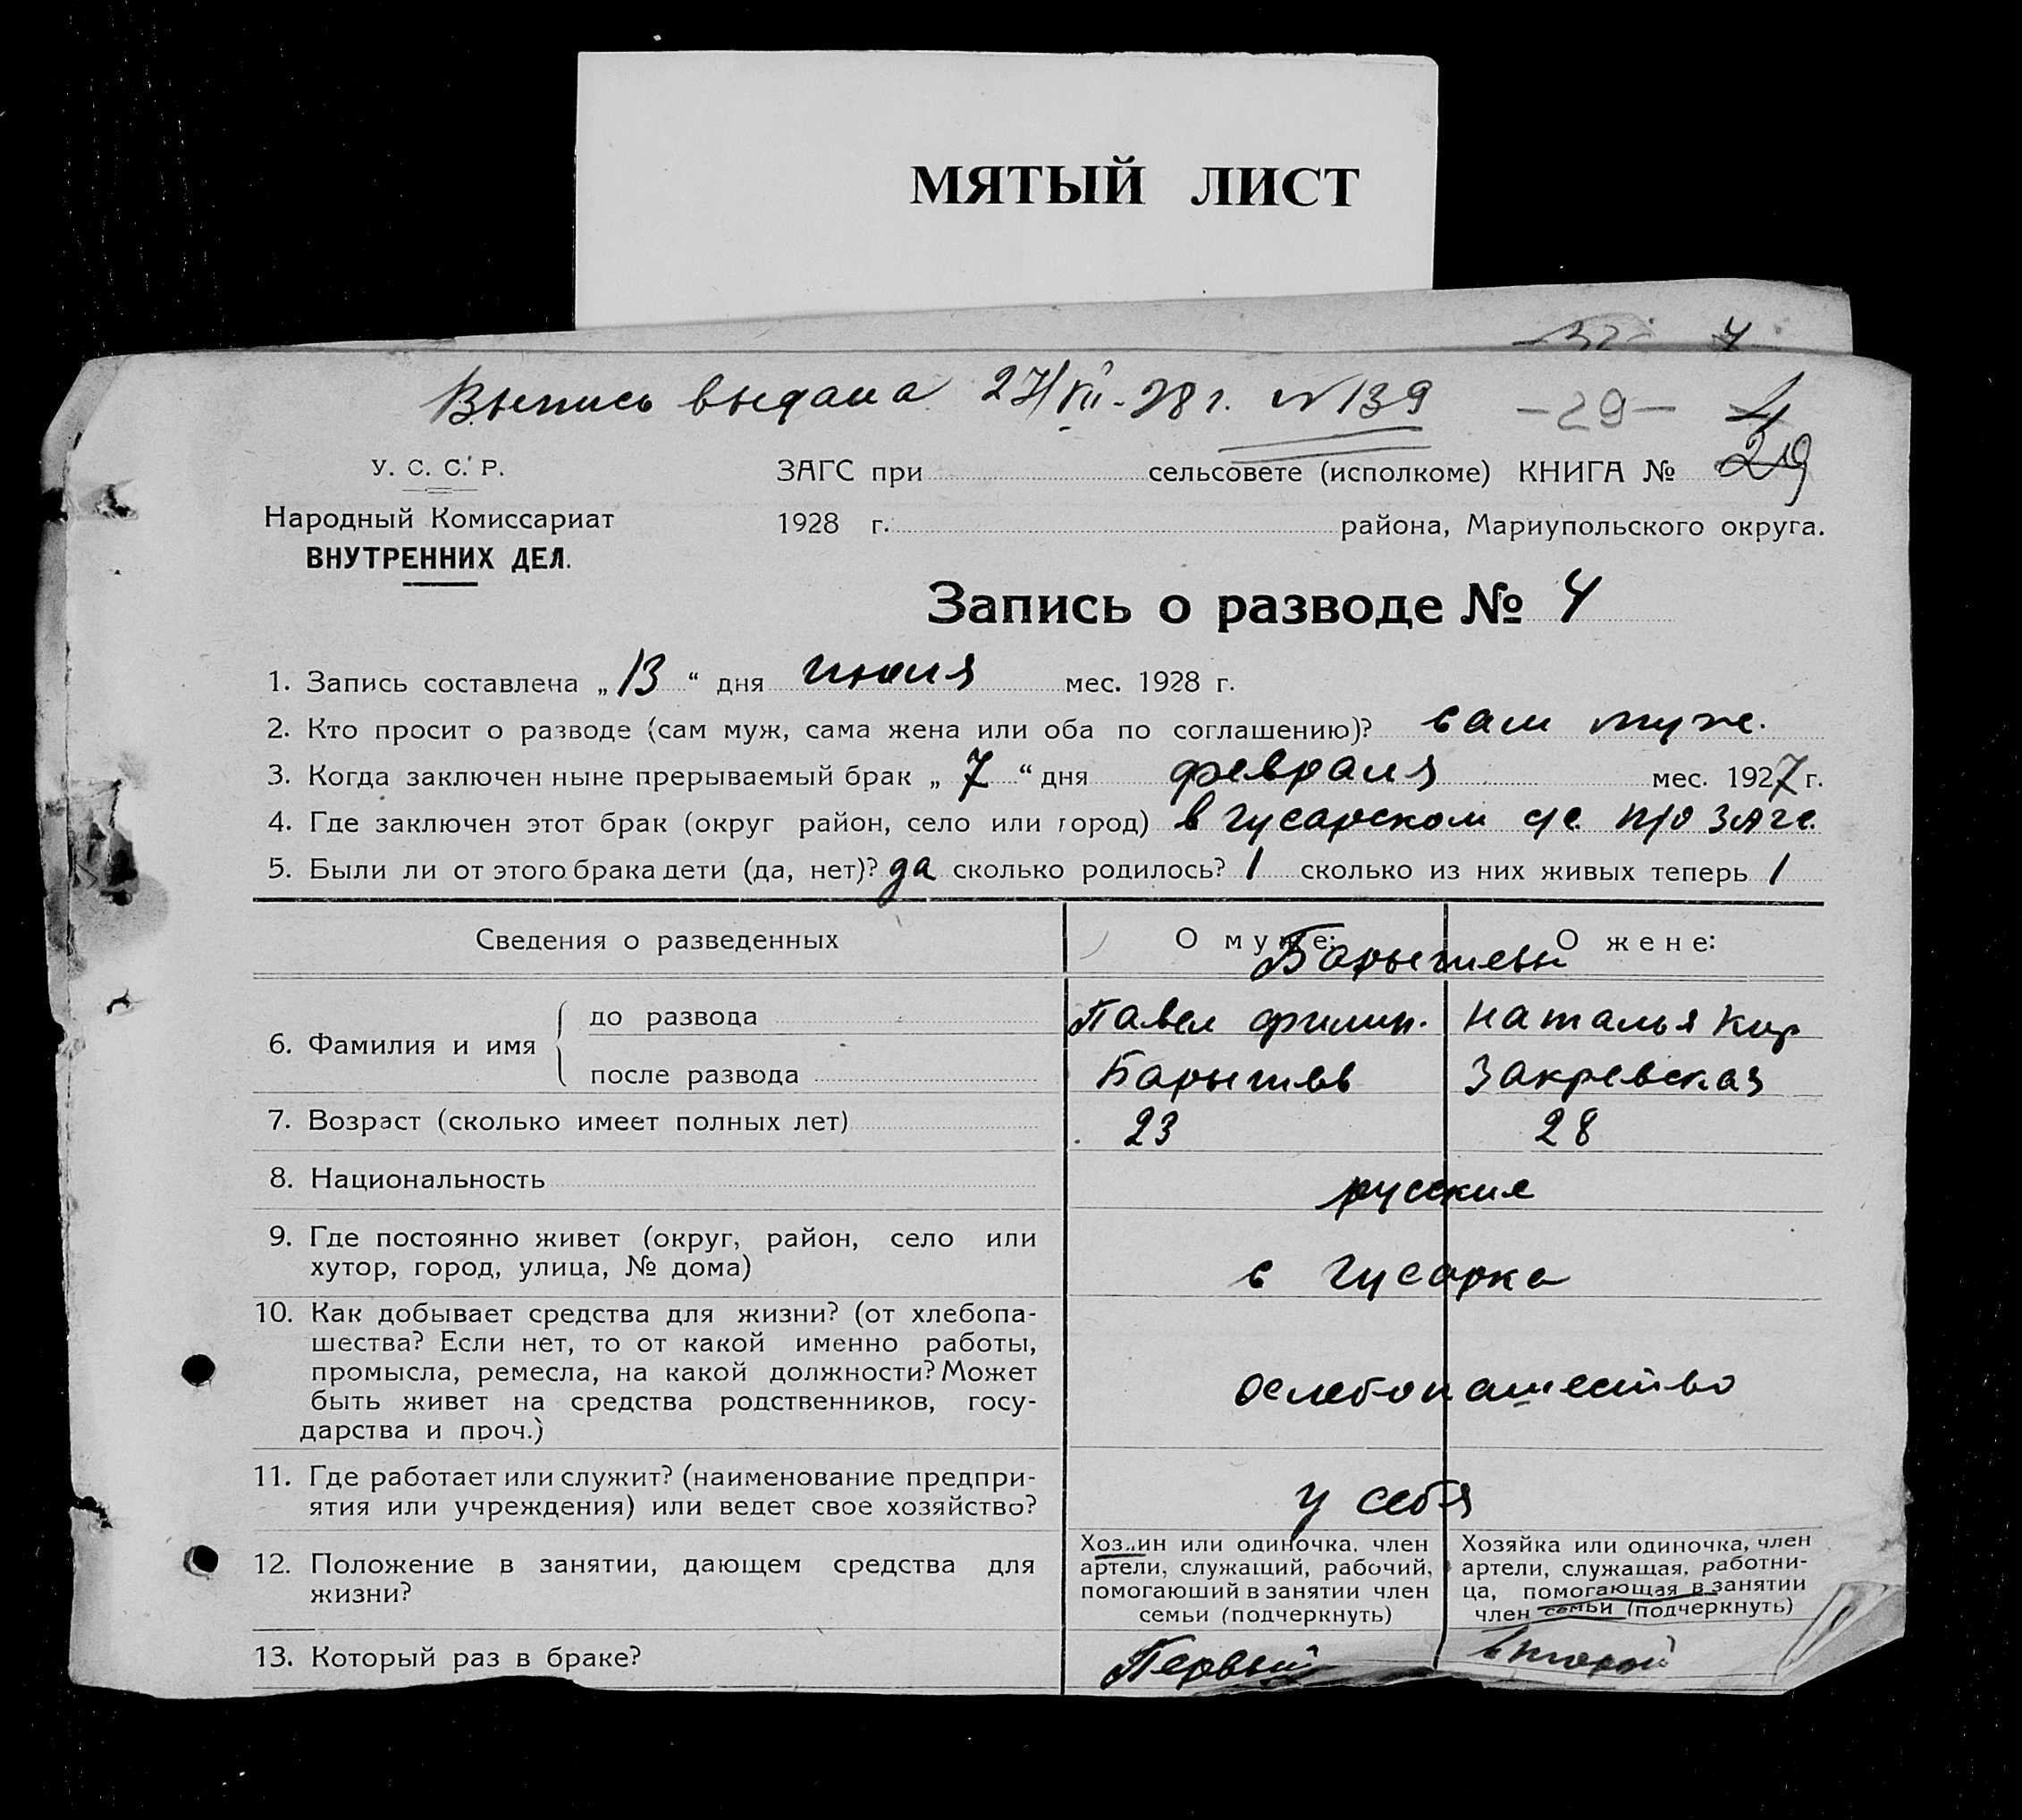 МЯТЫЙ ЛИСТ
Выпись выдана 27/VII-28 г. N 139 -29- 4
У. С. С. Р.
ЗАГС при сельсовете (исполкоме) КНИГА № 29
Народный Комиссариат
1928 г. района, Мариупольского округа.
ВНУТРЕННИХ ДЕЛ.
Запись о разводе № 4
1. Запись составлена „13“ дня июля мес. 1928 г.
2. Кто просит о разводе (сам муж, сама жена или оба по соглашению)? сам муж.
3. Когда заключен ныне прерываемый брак „7“ дня февраля мес. 1927 г.
4. Где заключен этот брак (округ район, село или город) в Гусарском с/с п/о ЗАГС.
5. Были ли от этого брака дети (да, нет)? да сколько родилось? 1 сколько из них живых теперь 1
Сведения о разведенных О муже: О жене:
6. Фамилия и имя
до развода Павел Филип. Наталья Кир
после развода Закревская
7. Возраст (сколько имеет полных лет) 23 28
8. Национальность русские
9. Где постоянно живет (округ, район, село или
хутор, город, улица, № дома) с Гусарка
10. Как добывает средства для жизни? (от хлебопа-
шества? Если нет, то от какой именно работы,
промысла, ремесла, на какой должности? Может
быть живет на средства родственников, госу-
дарства и проч.)
хлебопашество
11. Где работает или служит? (наименование предпри-
ятия или учреждения) или ведет свое хозяйство?
у себя
12. Положение в занятии, дающем средства для
жизни?
Хозяин или одиночка, член
артели, служащий, рабочий,
помогающий в занятии член
семьи (подчеркнуть)
Хозяйка или одиночка, член
артели, служащая, работни-
ца, помогающая в занятии
член семьи (подчеркнуть)
13. Который раз в браке? Первый второй